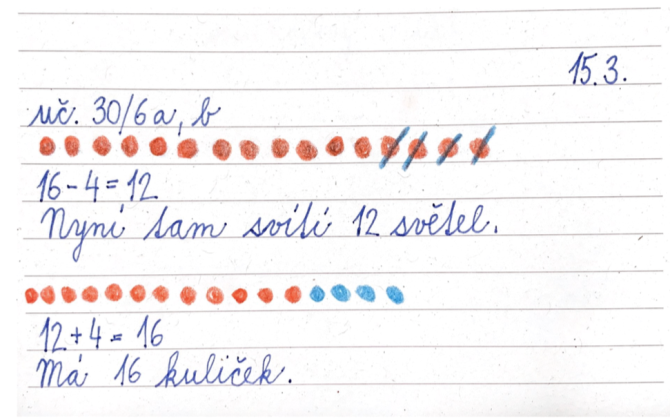 15.3.
uč. 30/6 a, b
16-4=12
Nyní tam svítí 12 světel.
12+4= 16
Má 16 kuliček.